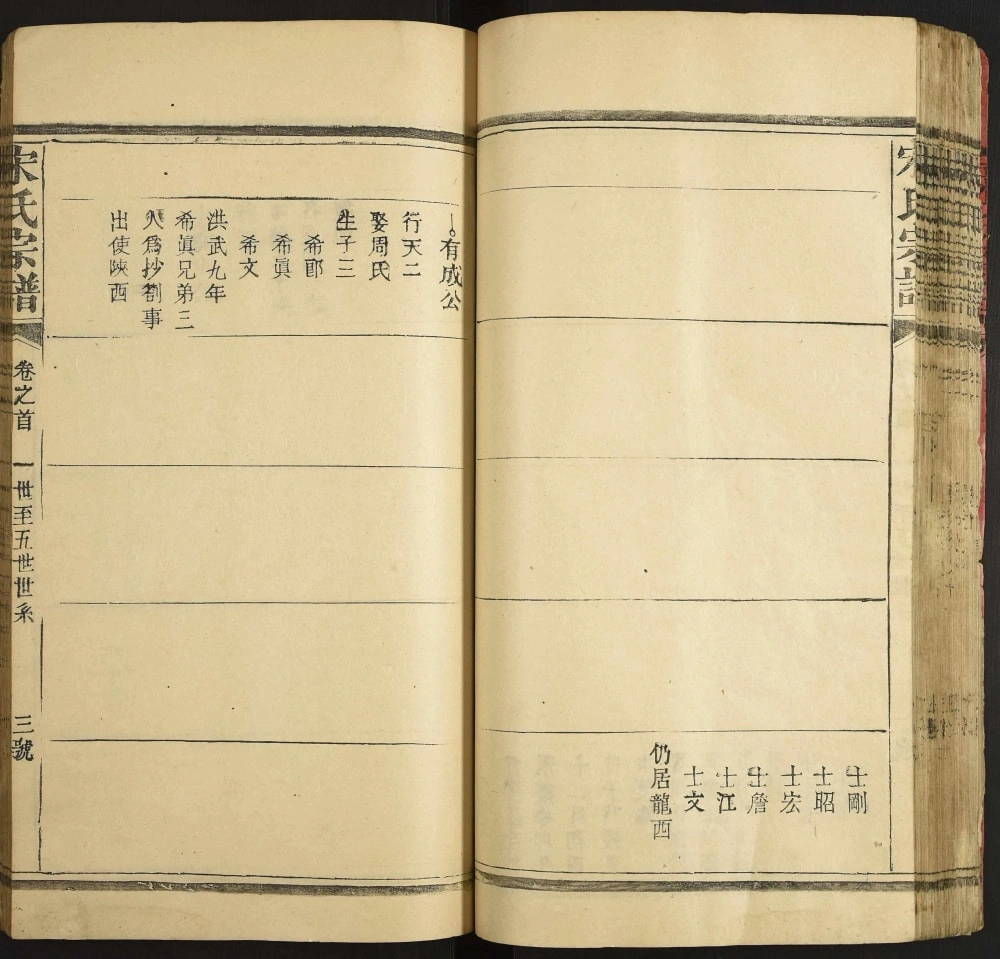 宋氏宗譜
士剛
士昭
士宏
士詹
士江
士文
仍居龍西
有成公
行天二
娶周氏
生子三
希郎
希眞
希文
洪武九年
希眞兄弟三
人爲抄劄事
出使陝西
宋氏宗譜
卷之首
一世至五世世系
三號